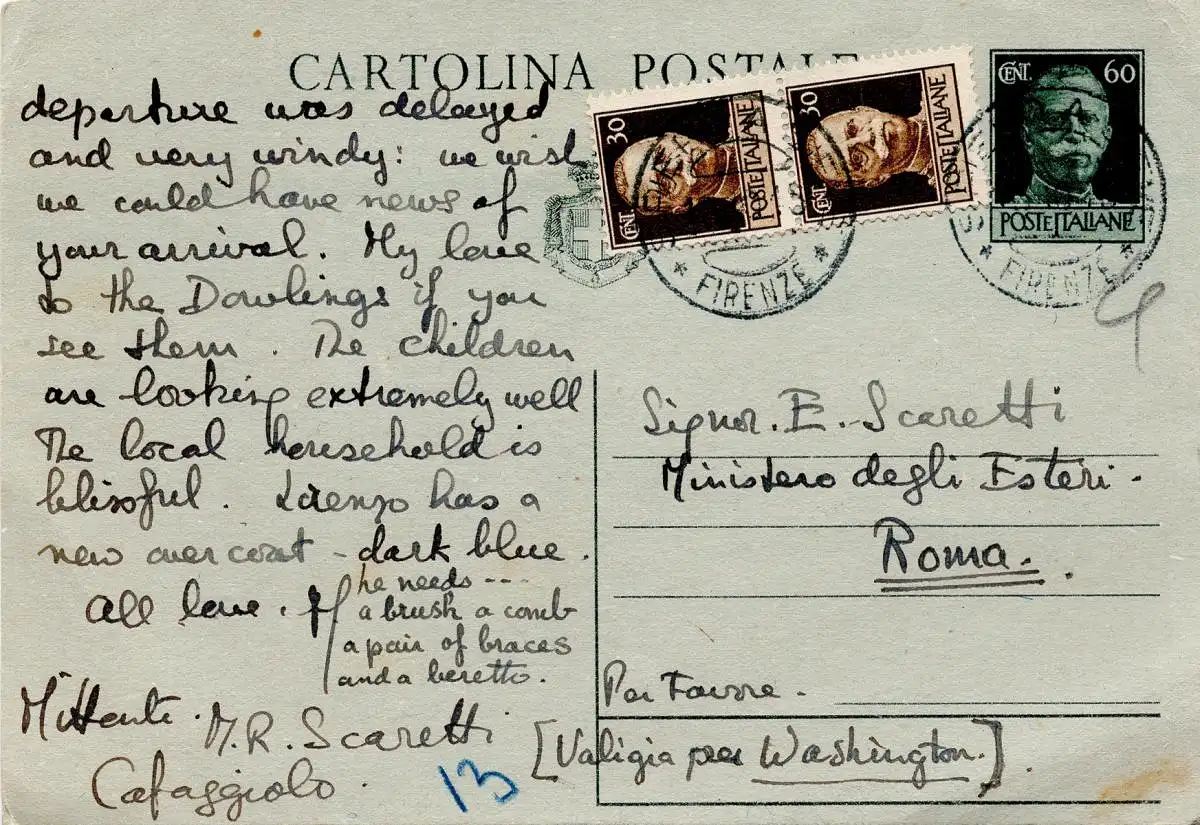 CARTOLINA POSTALE
departure was delayed
and very windy: we wish
we could have news of
your arrival. My love
to the Dowlings if you
see them. The children
are looking extremely well
The local household is
blissful. Lorenzo has a
new overcoat - dark blue.
All love.
he needs ---
a brush a comb
a pair of braces
and a beretto.
Mittente. M.R. Scaretti
Cafaggiolo.
13
30
CENT.
POSTE ITALIANE
30
CENT.
POSTE ITALIANE
CENT. 60
POSTE ITALIANE
FIRENZE
FIRENZE
Signor. E. Scaretti
Ministero degli Esteri.
Roma.
Per Favore.
[Valigia per Washington.]